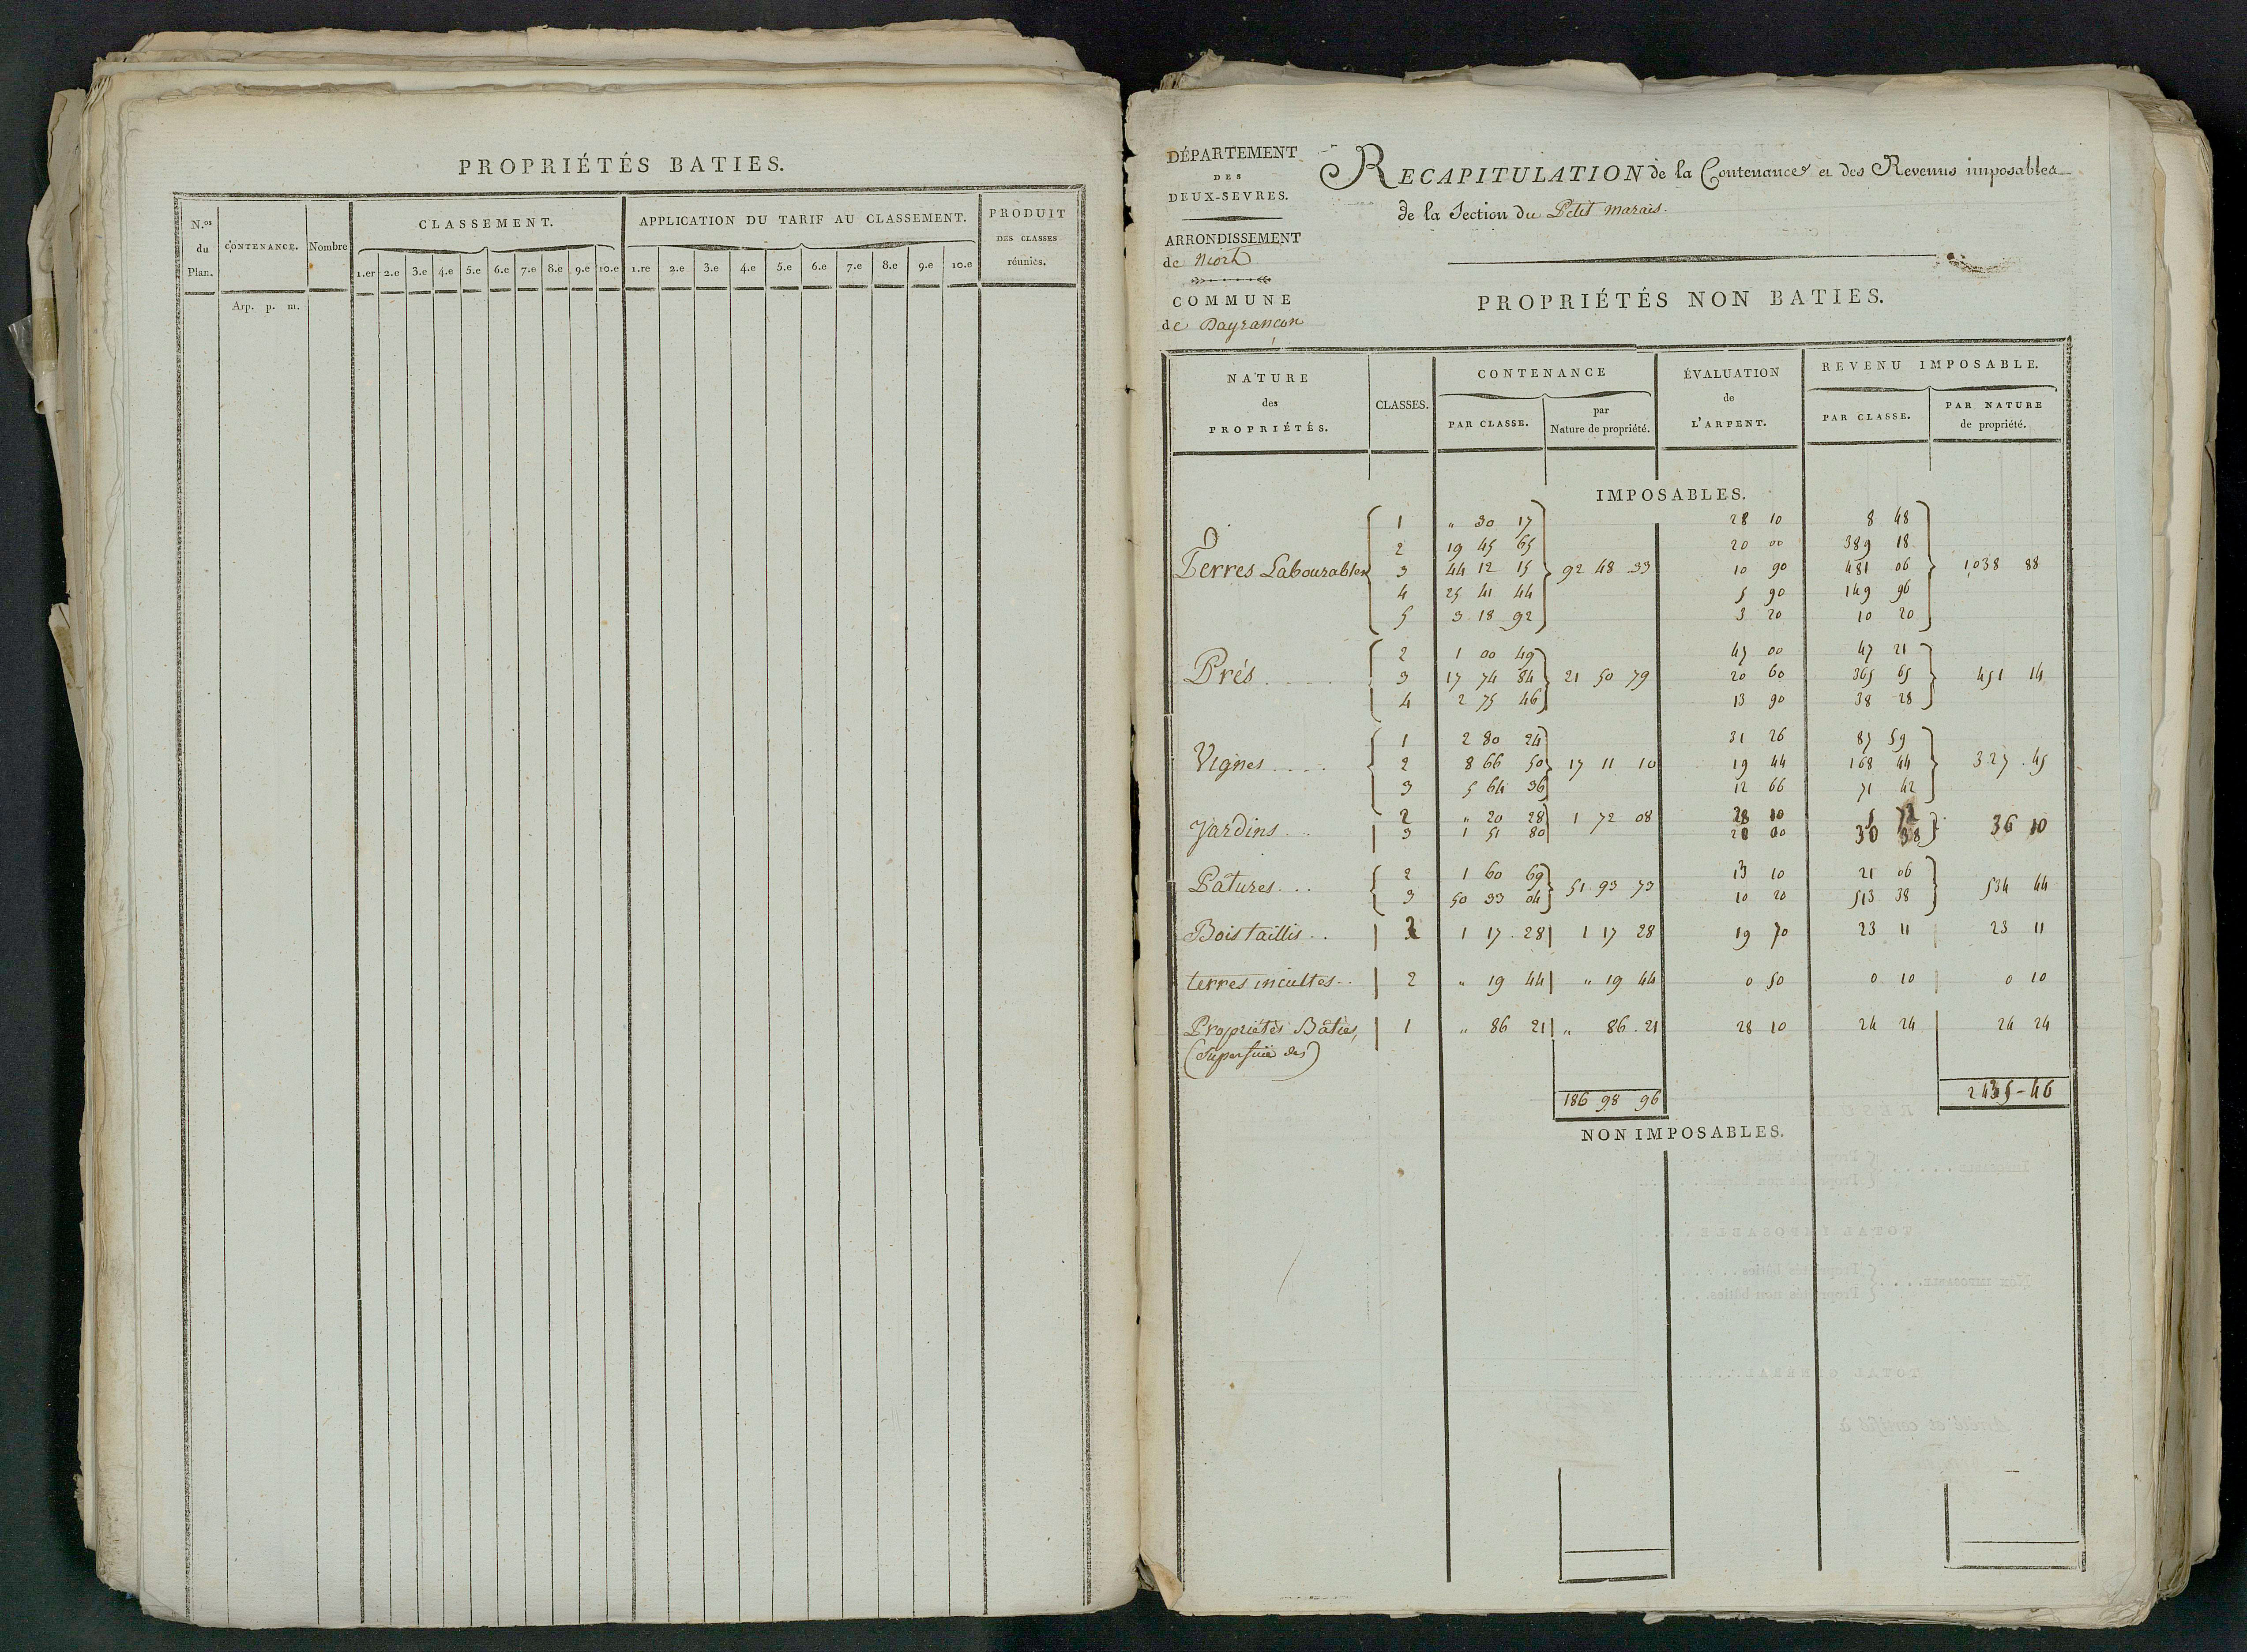 PROPRIÉTÉS BATIES.
N.os du Plan. CONTENANCE. Nombre CLASSEMENT. APPLICATION DU TARIF AU CLASSEMENT. PRODUIT DES CLASSES réunies.
1.er 2.e 3.e 4.e 5.e 6.e 7.e 8.e 9.e 10.e 1.re 2.e 3.e 4.e 5.e 6.e 7.e 8.e 9.e 10.e
Arp. p. m.
DÉPARTEMENT
DES
DEUX-SEVRES.
ARRONDISSEMENT
de Niort
COMMUNE
de Dayrançon
RECAPITULATION de la Contenance et des Revenus imposables
de la Section du Petit marais.
PROPRIÉTÉS NON BATIES.
NATURE des PROPRIÉTÉS. CLASSES. CONTENANCE ÉVALUATION de L'ARPENT. REVENU IMPOSABLE.
PAR CLASSE. par Nature de propriété. PAR CLASSE. PAR NATURE de propriété.
IMPOSABLES.
1 " 30 17 28 10 8 48
2 19 45 65 20 00 389 18
Terres Labourables 3 44 12 15 92 48 33 10 90 481 06 1038 88
4 25 41 44 5 90 149 96
5 3 18 92 3 20 10 20
2 1 00 49 47 00 47 21
Prés 3 17 74 84 21 50 79 20 60 365 65 451 14
4 2 75 46 13 90 38 28
1 2 80 24 31 26 87 59
Vignes 2 8 66 50 17 11 10 19 44 168 44 327.45
3 5 64 36 12 66 71 42
2 " 20 28 1 72 08 28 10 5 72
Jardins 3 1 51 80 20 00 30 38 36 10
2 1 60 69 13 10 21 06
Patures 3 50 33 04 51 93 73 10 20 513 38 534 44
Bois taillis 2 1 17 28 1 17 28 19 70 23 11 23 11
terres incultes 2 " 19 44 " 19 44 0 50 0 10 0 10
Propriétés Baties, 1 " 86 21 " 86.21 28 10 24 24 24 24
(Superficie des)
186 98 96 2435-46
NON IMPOSABLES.